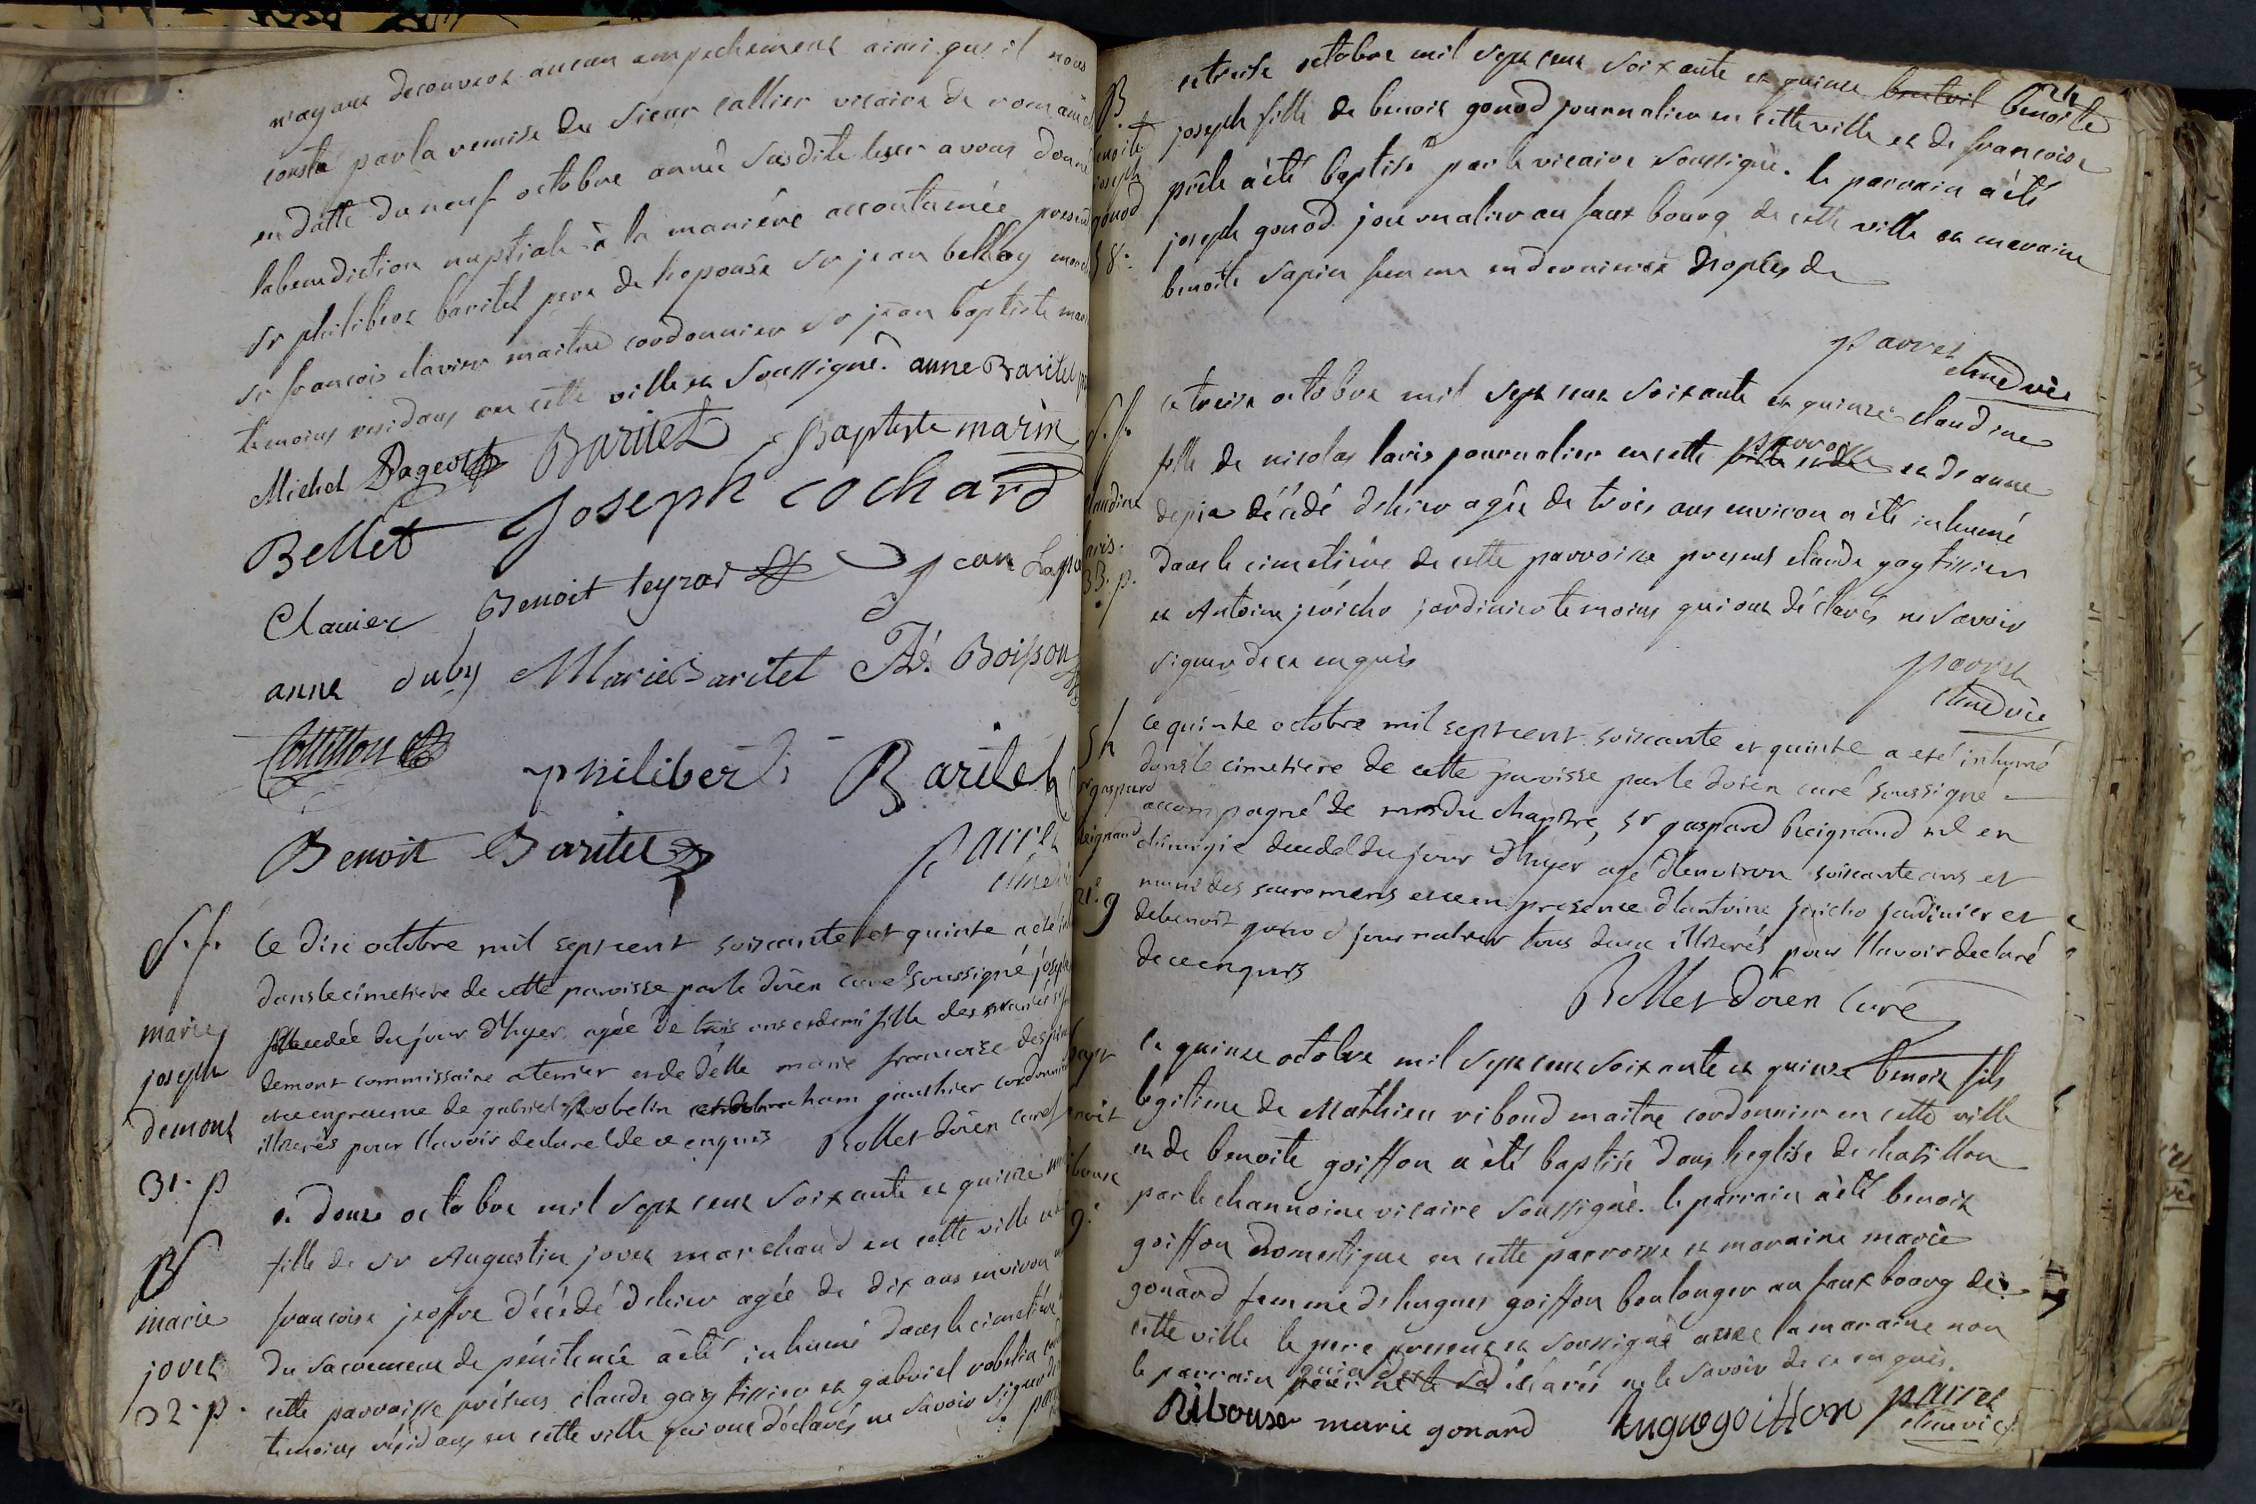 n'ayant decouvert aucun empechement ainsi qus il nous
consta par la remise du sieur callier vicaire de romanê
en datte du neuf octobre année susdite leur avons donné
la benediction nuptiale à la maniére accoutumée present
sr philibert baritel pere de l'epouse sr jean belloy
sr francois clavier maitre cordonnier sr jean baptiste
temoins residans en cette ville et soussigné. anne Baritel
Michel Pageot Baritel Baptiste marin
Bellet Joseph cochard
Clavier Benoit teyrar jean
anne duby Marie Baritel Boisson
philibert Baritel
Benoit Baritel parret
S. f.
marie
joseph
demont
31. p
Ce dix octobre mil sept cent soixante et quinze a été
dans le cimetiere de cette paroisse par le doien curé soussigné joseph
decedée du jour d'hyer agée de trois ans et demi fille des mariés
demont commissaire a terrier et de delle marie francoise
et ce en presence de gabriel robelin et ham gauthier cordonnier
illiterés pour l'avoir declaré de ce enquis Rollet doien curé
B
marie
jovet
32. p.
ce douze octobre mil sept cent soixante et quinze
fille de sr Augustin jovet marchand en cette ville et
francoise jeoffre décédé dehier agée de dix ans environ
du sacrement de pénitence a été inhumé dans le cimetiére
cette parroisse présens claude gay tissier et gabriel robelin
temoins résidans en cette ville qui ont déclarés ne savoir signer
24
B.
enoite
joseph
gonod
58.
ce treise octobre mil sept cent soixante et quinze benoite
joseph fille de benoit gonod journalier en cette ville et de francoise
prêle a été baptisé par le vicaire soussigné. le parrain a été
joseph gonod journalier au faux bourg de cette ville et maraine
benoite sapin
parret
chne vie
S. f.
claudine
laris.
33. p.
ce treise octobre mil sept cent soixante et quinze claudine
fille de nicolas laris journalier en cette parroisse et d'anne
depia décédé dehier agée de trois ans environ a été inhumé
dans le cimetiére de cette parroisse presens claude gay tissier
et Antoine jericho jardinier temoins qui ont déclarés ne savoir
signer de ce enquis
parret
chne vie
Sh
sr gaspard
breignaud
21. g
Ce quinze octobre mil sept cent soixante et quinze a eté inhumé
dans le cimetiere de cette paroisse par le doien curé soussigné
accompagné de mrs du chapitre, sr gaspard breignaud me en
chirurgie decedé du jour d'hyer agé d'environ soixante ans et
muni des sacremens et ce en presence d'antoine Jericho jardinier et
de benoit gonod journalier tous deux illiterés pour l'avoir declaré
de ce enquis
Rollet doien curé
Bapt
benoit
ribouse
9.
ce quinze octobre mil sept cent soixante et quinze benoit fils
legitime de Mathieu riboud maitre cordonnier en cette ville
et de benoite goiffon a été baptisé dans l'eglise de chatillon
par le channoine vicaire soussigné. le parrain a été benoit
goiffon domestique en cette parroisse et maraine marie
gonard femme d'hugues goiffon boulanger au faux bourg de
cette ville le pere present et soussigné avec la maraine non
le parrain qui a déclarés ne le savoir de ce enquis.
Ribouse marie gonard hugue goiffon parret
chne vic